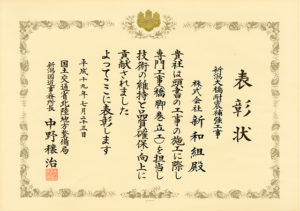 表彰状
新潟大橋耐震補強工事
株式会社 新和組殿
貴社は頭書の工事の施工に際し
専門工事(橋脚巻立工)を担当し
技術の維持と品質確保・向上に
貢献されました
よってここに表彰します
平成十九年七月二十三日
国土交通省北陸地方整備局
新潟国道事務所長 中野穣治